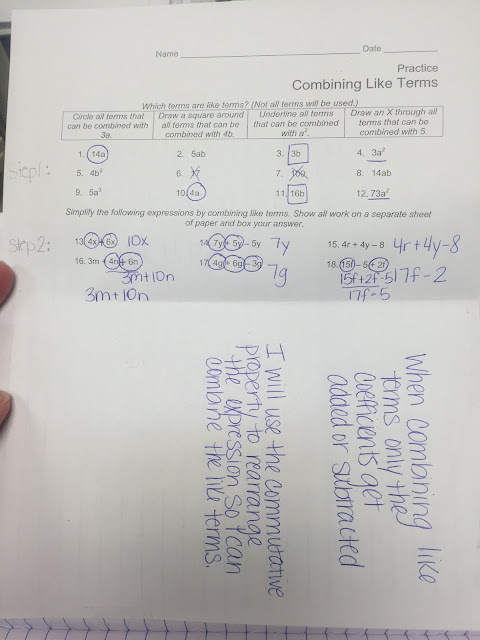 Name Date
Practice
Combining Like Terms
Which terms are like terms? (Not all terms will be used.)
Circle all terms that can be combined with 3a.
Draw a square around all terms that can be combined with 4b.
Underline all terms that can be combined with a².
Draw an X through all terms that can be combined with 5.
1. 14a 2. 5ab 3. 3b 4. 3a²
Step 1:
5. 4b² 6. 17 7. 100 8. 14ab
9. 5a³ 10. 4a 11. 16b 12. 73a²
Simplify the following expressions by combining like terms. Show all work on a separate sheet
of paper and box your answer.
Step 2:
13. 4x + 6x 10x 14. 7y + 5y – 5y 7y 15. 4r + 4y – 8 4r + 4y - 8
16. 3m + 4n + 6n 17. 4g + 6g – 3g 7g 18. 15f – 5 + 2f
3m+10n 15f+2f-5 17f-2
3m+10n 17f-5
When combining like
terms only the
coefficients get
added or subtracted
I will use the commutative
property to rearrange
the expression so I can
combine the like terms.